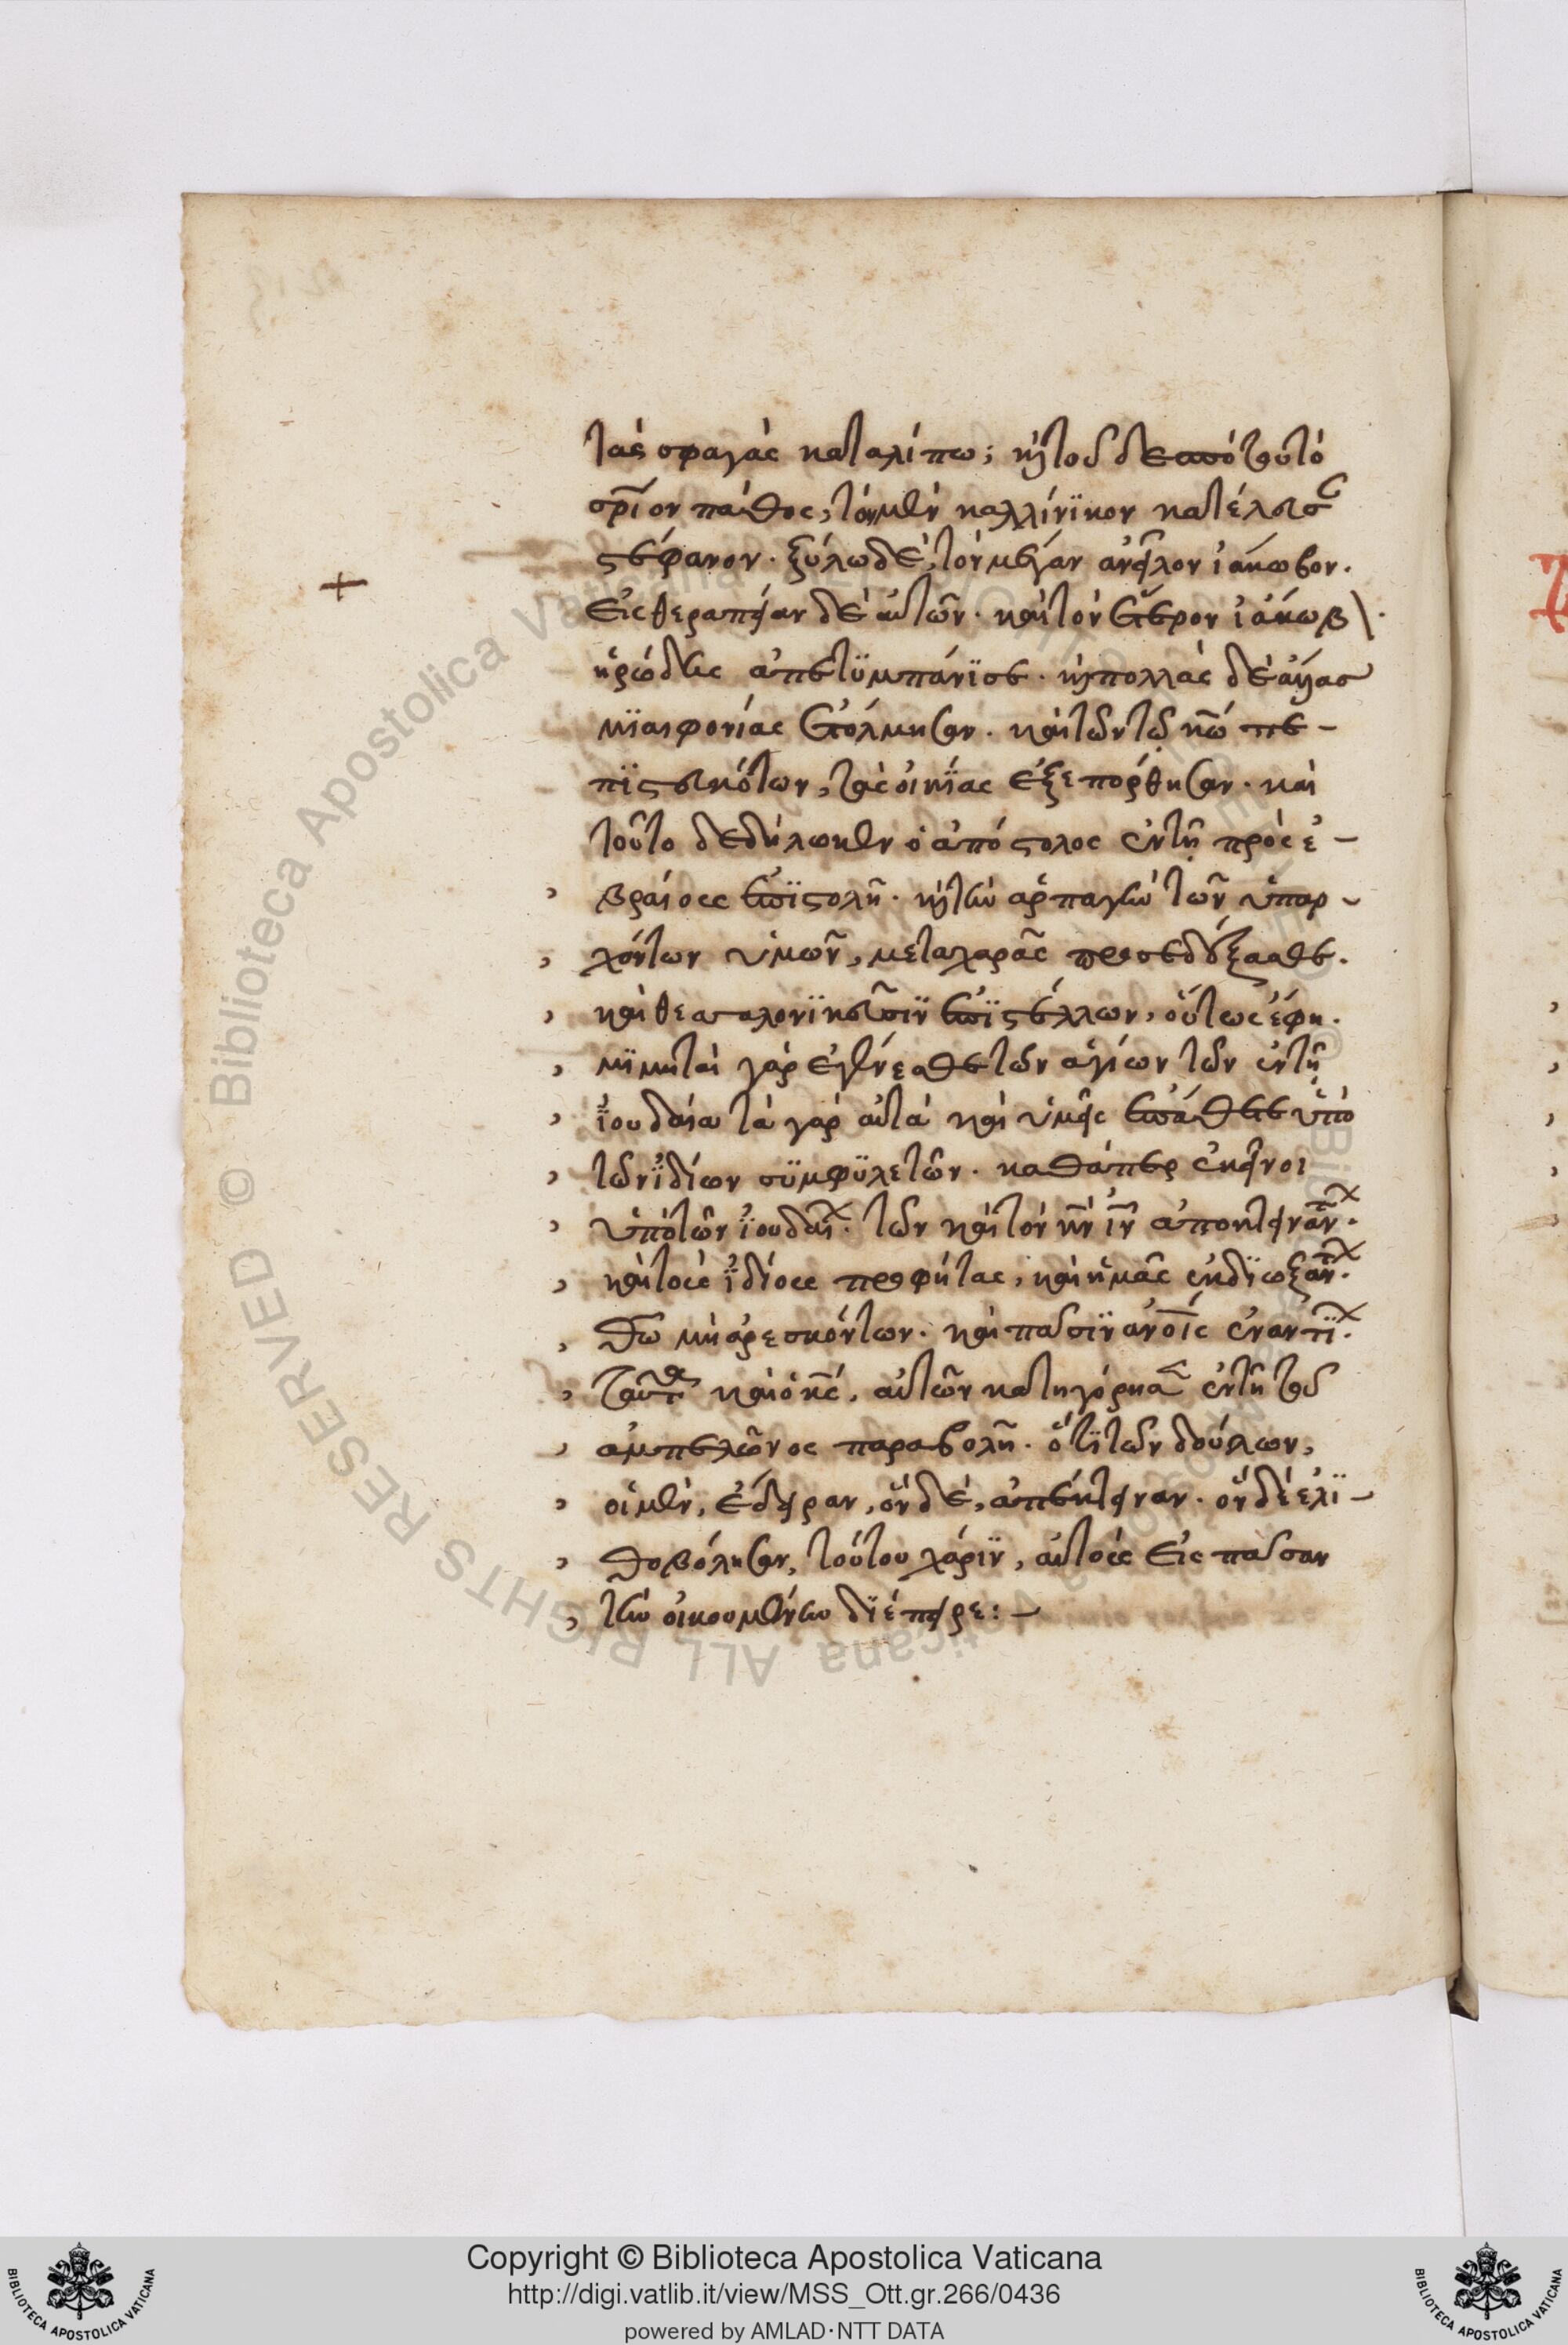 τὰς σφαγὰς καταλίπω; κ(αὶ) τοῦ δεσποτου τὸ
σρ̅ιον πάθος, τὸν μὲν καλλίνϊκον κατέλυσ
στέφανον. ξύλω δὲ, τὸν μέγαν ἀνεῖλον ἰάκωβον.
εἰς θεραπείαν δὲ αὐτῶν. καὶ τὸν ἕτερον ἰάκωβ
ἡρώδης ἀπετϋμπάνϊσε. κ(αὶ) πολλὰς δὲ
μϊαιφονίας ἐτόλμησαν. καὶ τῶν τῶ κ̅ω̅ πε-
πϊστευκότων, τὰς οἰκΐας ἐξεπόρθησαν. καὶ
τοῦτο δεδήλωκεν ὁ ἀπόστολος ἐν τῆ πρὸς ἑ-
βραίους ἐπϊστολῆ. κ(αὶ) τὴν ἁρπαγὴν τῶν ὑπαρ-
χόντων ὑμῶν, μετὰ χαρᾶς προσεδέξασθε.
καὶ θεσσαλονϊκεῦσϊν ἐπϊστέλλων, οὕτως ἔφη.
μϊμηταὶ γὰρ ἐγένεσθε τῶν ἁγίων τῶν ἐν τῆ
ἰουδαία τὰ γὰρ αὐτὰ καὶ ὑμεῖς ἐπάθετε ὑπὸ
τῶν ἰδίων σϋμφϋλετῶν. καθάπερ ἐκεῖνοι
ὑπὸ τῶν ἰουδαΐ. τῶν καὶ τὸν κ̅ν̅ ι̅ν̅ ἀποκτεινάν̅τ.
καὶ τοὺς ἰδίους προφήτας, καὶ ἡμᾶς ἐκδϊωξάν̅τ.
θ̅ω̅ μὴ ἀρεσκόντων. καὶ πᾶσϊν α̅ν̅ο̅ι̅ς ἐναντϊ.
ταῦτα καὶ ὁ κ̅ς̅, αὐτῶν κατηγόρησ ἐν τῆ τοῦ
ἀμπελῶνος παραβολῆ. ὅτϊ τῶν δούλων,
οἱ μὲν, ἔδειραν, ὃν δὲ, ἀπέκτειναν. ὃν δὲ ἐλϊ-
θοβόλησαν, τούτου χάρϊν, αὐτοὺς εἰς πᾶσαν
τὴν οἰκουμένην δϊέπειρε:-
Copyright © Biblioteca Apostolica Vaticana
http://digi.vatlib.it/view/MSS_Ott.gr.266/0436
powered by AMLAD·NTT DATA